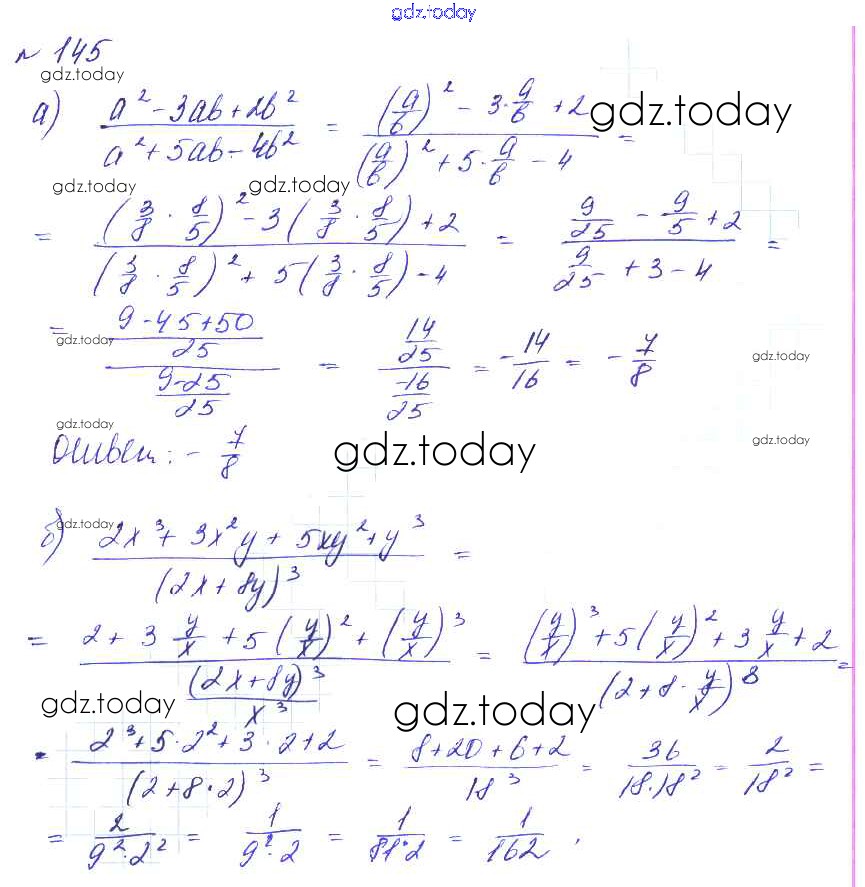 gdz.today
№ 145
gdz.today
а) (a² - 3ab + 2b²)/(a² + 5ab - 4b²) = ((a/b)² - 3·a/b + 2)/((a/b)² + 5·a/b - 4) =
gdz.today
gdz.today gdz.today
= ((3/8 · 8/5)² - 3(3/8 · 8/5) + 2)/((3/8 · 8/5)² + 5(3/8 · 8/5) - 4) = (9/25 - 9/5 + 2)/(9/25 + 3 - 4) =
= ((9-45+50)/25)/((9-25)/25) = (14/25)/(-16/25) = -14/16 = -7/8
gdz.today gdz.today
gdz.today gdz.today
Ответ: -7/8
gdz.today
gdz.today
б) (2x³ + 3x²y + 5xy² + y³)/(2x + 8y)³ =
= (2 + 3 y/x + 5(y/x)² + (y/x)³)/((2x + 8y)³/x³) = ((y/x)³ + 5(y/x)² + 3 y/x + 2)/(2 + 8·y/x)³ =
gdz.today gdz.today
= (2³ + 5·2² + 3·2 + 2)/(2 + 8·2)³ = (8 + 20 + 6 + 2)/18³ = 36/(18·18²) = 2/18² =
= 2/(9²·2²) = 1/(9²·2) = 1/(81·2) = 1/162.